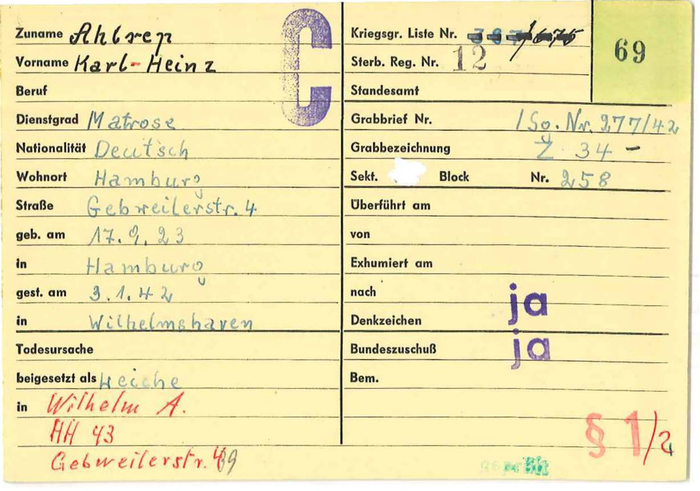 Zuname Ahlrep
Vorname Karl-Heinz
Beruf
Dienstgrad Matrose
Nationalität Deutsch
Wohnort Hamburg
Straße Gebweilerstr. 4
geb. am 17.9.23
in Hamburg
gest. am 3.1.42
in Wilhelmshaven
Todesursache
beigesetzt als Leiche
in Wilhelm A.
HH 43
Gebweilerstr.
C
Kriegsgr. Liste Nr.
Sterb. Reg. Nr. 12
Standesamt
Grabbrief Nr. / So. Nr. 277/42
Grabbezeichnung Z 34 -
Sekt. Block Nr. 258
Überführt am
von
Exhumiert am
nach
Denkzeichen ja
Bundeszuschuß ja
Bem.
§ 1/2
69